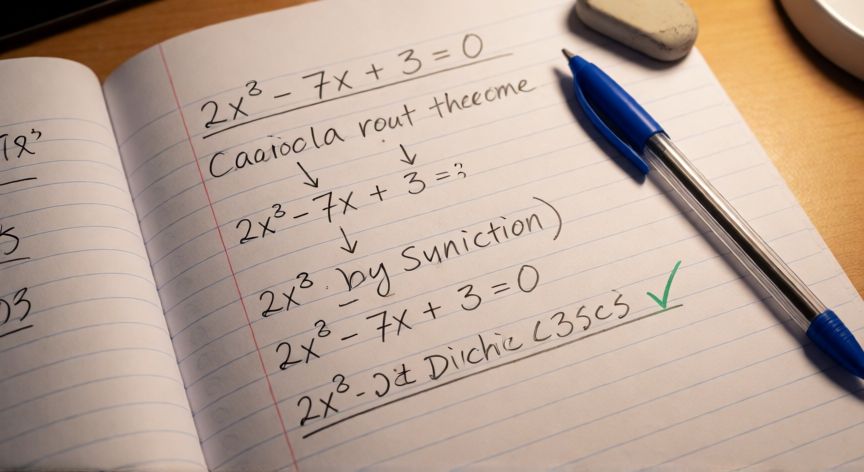 2x³ - 7x + 3 = 0
Caaioola rout theeome
2x³ - 7x + 3 = ?
2x³ . by Suniction)
2x³ - 7x + 3 = 0
2x³ - Diichic ✓
5
03